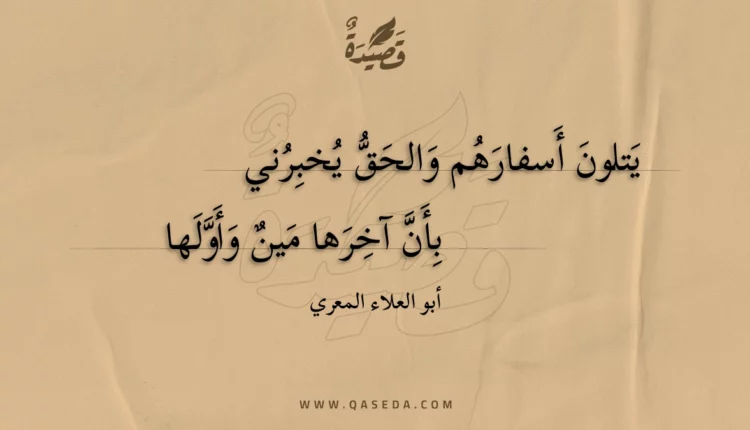 قَصِيدَةٌ
يَتلونَ أَسفارَهُم وَالحَقُّ يُخبِرُني
بِأَنَّ آخِرَها مَينٌ وَأَوَّلَها
أبو العلاء المعري
WWW.QASEDA.COM